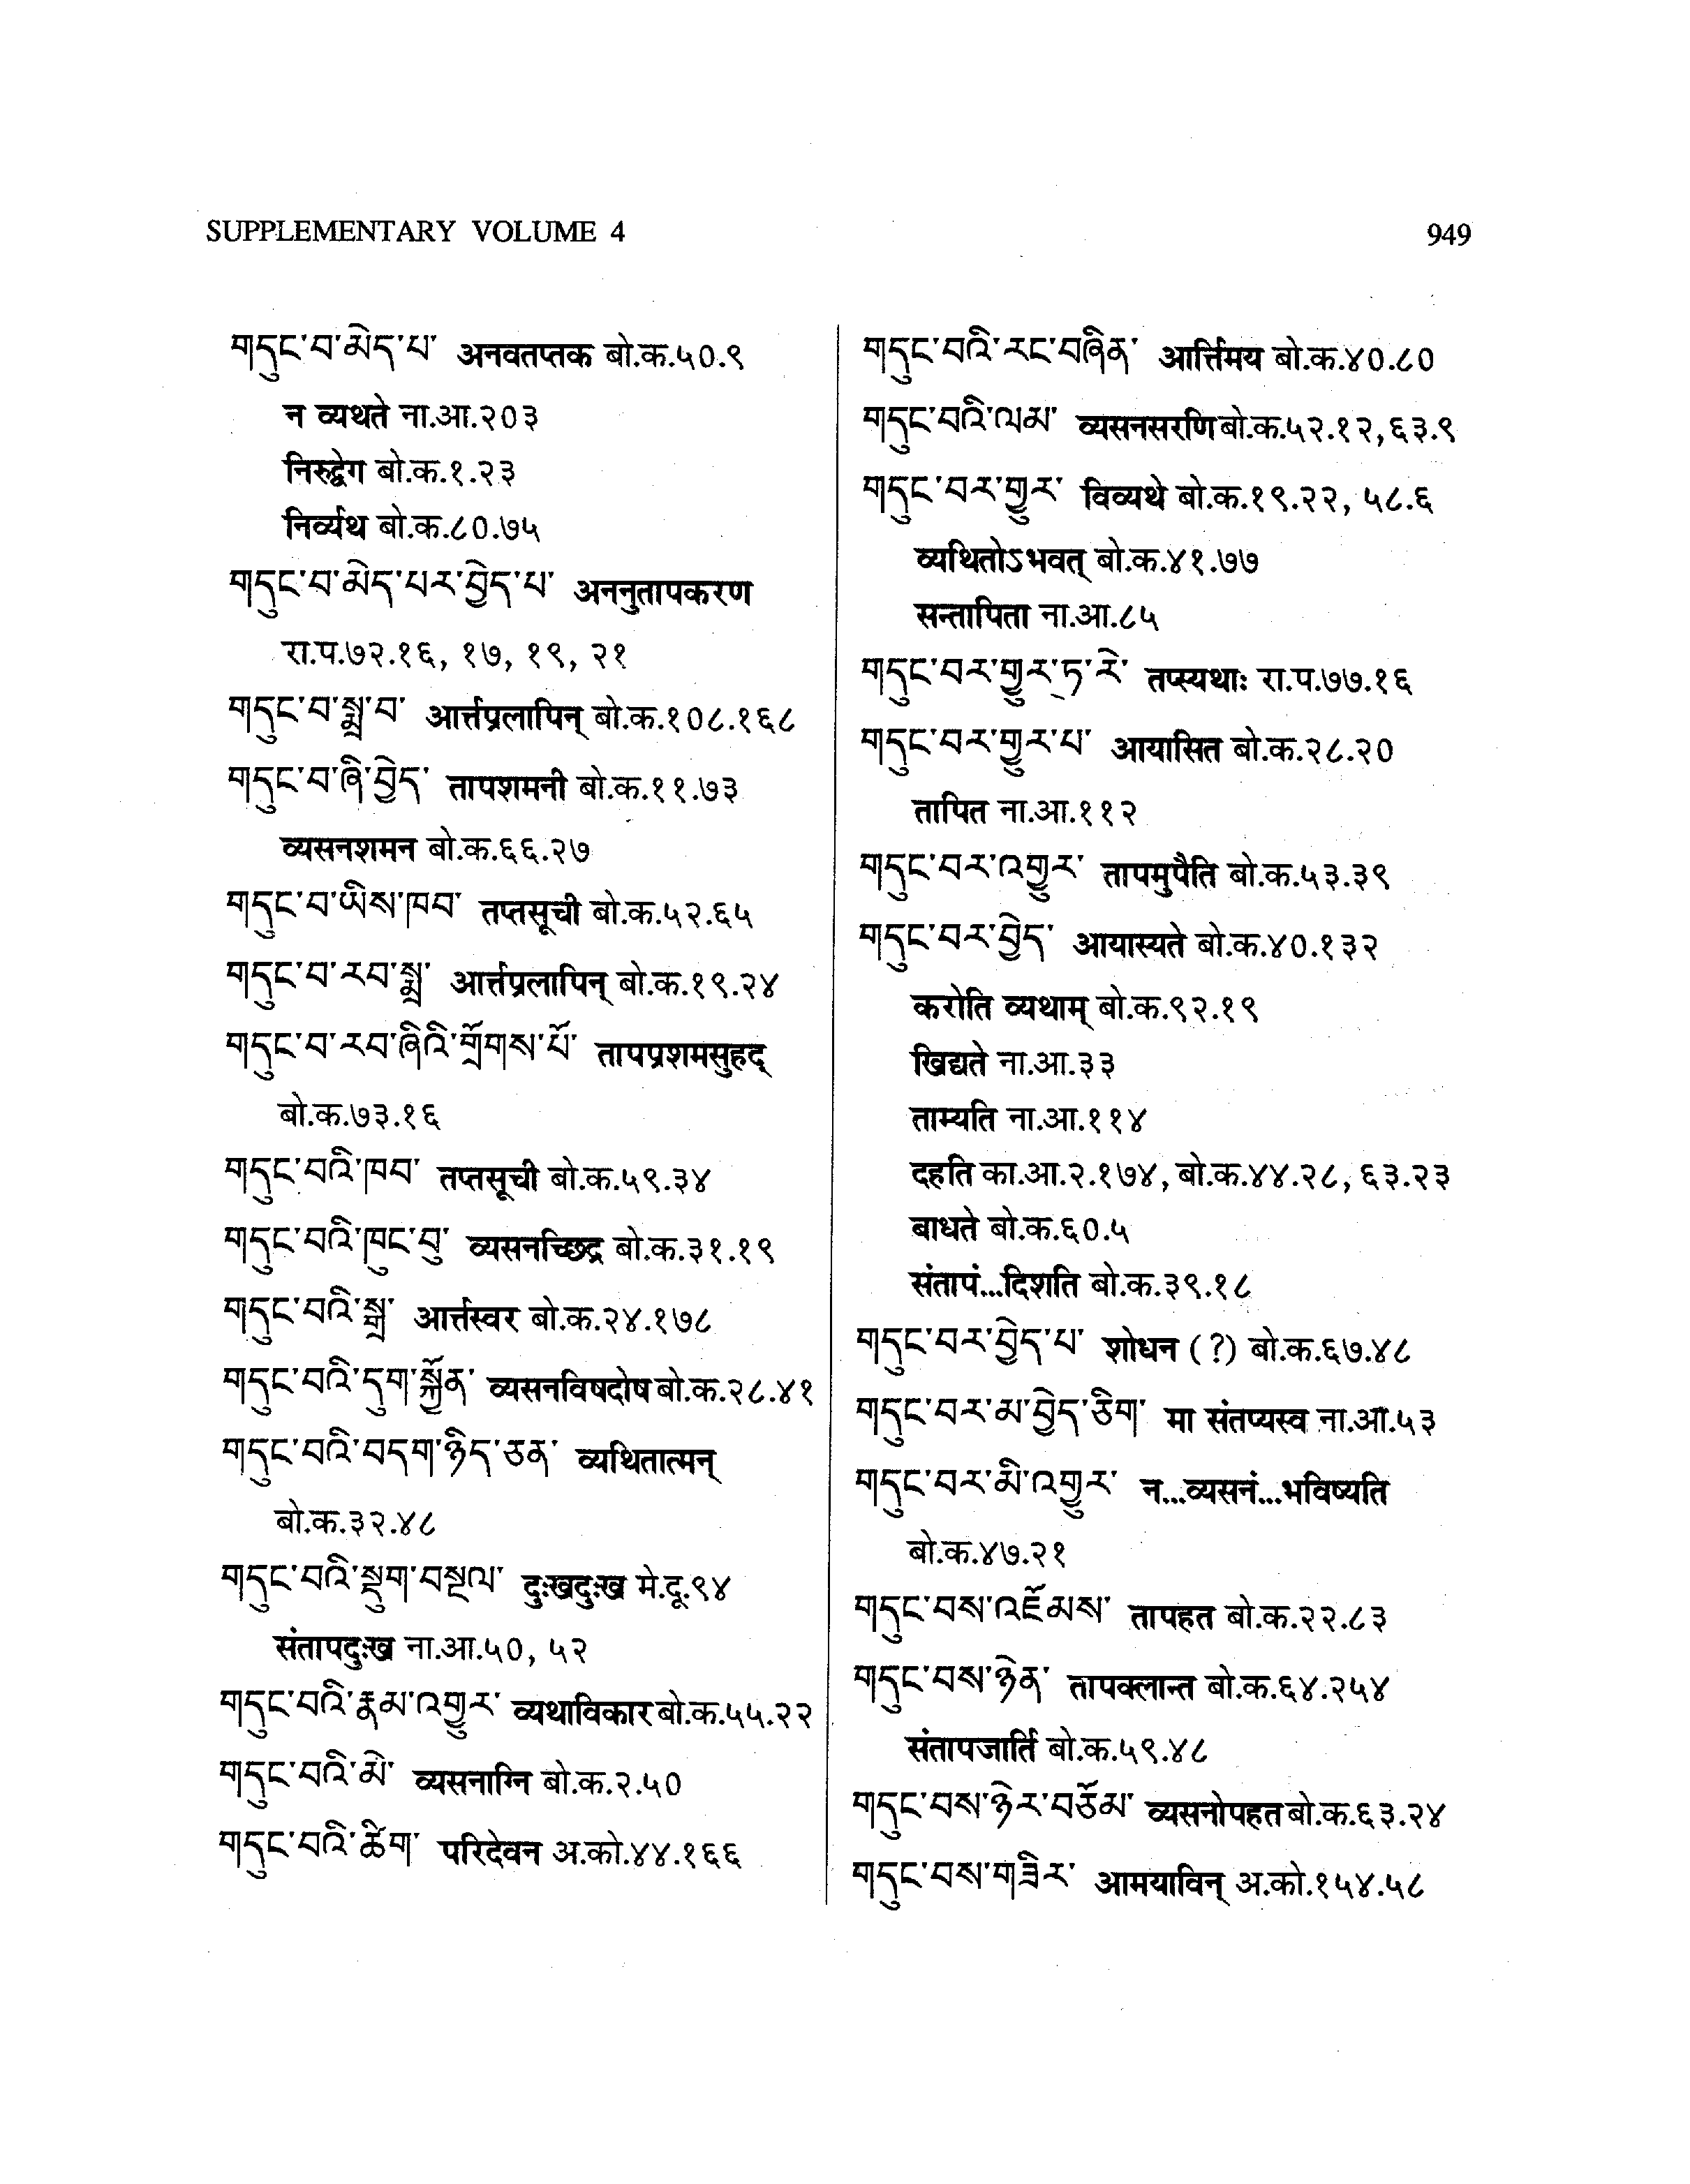 SUPPLEMENTARY VOLUME 4
949
གདུང་བ་མེད་པ་ अनवतप्तक बो.क.५०.९
न व्यथते ना.आ.२०३
निरुद्वेग बो.क.१.२३
निर्व्यथ बो.क.८०.७५
གདུང་བ་མེད་པར་བྱེད་པ་ अननुतापकरण
रा.प.७२.१६, १७, १९, २१
གདུང་བ་སྨྲ་བ་ आर्त्तप्रलापिन् बो.क.१०८.१६८
གདུང་བ་ཞི་བྱེད་ तापशमनी बो.क.११.७३
व्यसनशमन बो.क.६६.२७
གདུང་བ་ཡིས་ཁབ་ तप्तसूची बो.क.५२.६५
གདུང་བ་རབ་སྨྲ་ आर्त्तप्रलापिन् बो.क.१९.२४
གདུང་བ་རབ་ཞིའི་གྲོགས་པོ་ तापप्रशमसुहृद्
बो.क.७३.१६
གདུང་བའི་ཁབ་ तप्तसूची बो.क.५९.३४
གདུང་བའི་ཁུང་བུ་ व्यसनच्छिद्र बो.क.३१.१९
གདུང་བའི་སྒྲ་ आर्त्तस्वर बो.क.२४.१७८
གདུང་བའི་དུག་སྐྱོན་ व्यसनविषदोष बो.क.२८.४१
གདུང་བའི་བདག་ཉིད་ཅན་ व्यथितात्मन्
बो.क.३२.४८
གདུང་བའི་སྡུག་བསྔལ་ दुःखदुःख मे.दू.९४
संतापदुःख ना.आ.५०, ५२
གདུང་བའི་རྣམ་འགྱུར་ व्यथाविकार बो.क.५५.२२
གདུང་བའི་མེ་ व्यसनाग्नि बो.क.२.५०
གདུང་བའི་ཚིག་ परिदेवन अ.को.४४.१६६
གདུང་བའི་རང་བཞིན་ आर्त्तिमय बो.क.४०.८०
གདུང་བའི་ལམ་ व्यसनसरणि बो.क.५२.१२, ६३.९
གདུང་བར་གྱུར་ विव्यथे बो.क.१९.२२, ५८.६
व्यथितोऽभवत् बो.क.४१.७७
सन्तापिता ना.आ.८५
གདུང་བར་གྱུར་ཏ་རེ་ तप्स्यथाः रा.प.७७.१६
གདུང་བར་གྱུར་པ་ आयासित बो.क.२८.२०
तापित ना.आ.११२
གདུང་བར་འགྱུར་ तापमुपैति बो.क.५३.३९
གདུང་བར་བྱེད་ आयास्यते बो.क.४०.१३२
करोति व्यथाम् बो.क.९२.१९
खिद्यते ना.आ.३३
ताम्यति ना.आ.११४
दहति का.आ.२.१७४, बो.क.४४.२८, ६३.२३
बाधते बो.क.६०.५
संतापं...दिशति बो.क.३९.१८
གདུང་བར་བྱེད་པ་ शोधन (?) बो.क.६७.४८
གདུང་བར་མ་བྱེད་ཅིག་ मा संतप्यस्व ना.आ.५३
གདུང་བར་མི་འགྱུར་ न...व्यसनं...भविष्यति
बो.क.४७.२१
གདུང་བས་འཇོམས་ तापहत बो.क.२२.८३
གདུང་བས་ཉེན་ तापक्लान्त बो.क.६४.२५४
संतापजार्ति बो.क.५९.४८
གདུང་བས་ཉེར་བཅོམ་ व्यसनोपहत बो.क.६३.२४
གདུང་བས་གཟིར་ आमयाविन् अ.को.१५४.५८